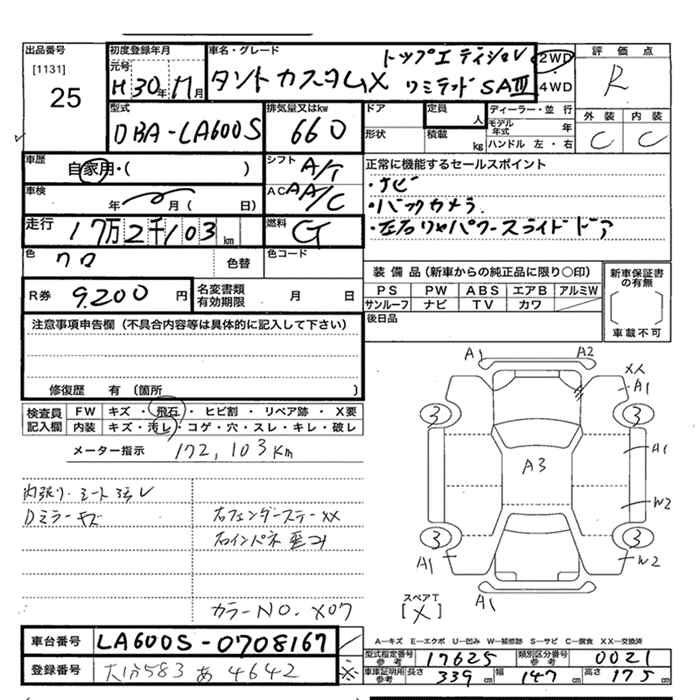 出品番号
[1131]
25
初度登録年月
元号
H 30年 11月
車名・グレード
トップエディション
タントカスタムX リミテッド SAⅢ
2WD
4WD
評価点
R
外装 内装
C C
型式
DBA-LA600S
排気量又はkw
660
ドア
形状
定員
人
積載
kg
ディーラー・並行
モデル年式 年
ハンドル 左・右
車歴
自家用・( )
シフト
A/T
正常に機能するセールスポイント
・ナビ
・バックカメラ
・左右リヤパワースライドドア
車検
年 月( 日)
AC
AA/C
走行
17万2千103km
燃料
G
色
クロ
色替
色コード
R券 9,200 円
名変書類有効期限 月 日
装備品(新車からの純正品に限り○印)
PS PW ABS エアB アルミW
サンルーフ ナビ TV カワ
後日品
新車保証書の有無
車載不可
注意事項申告欄(不具合内容等は具体的に記入して下さい)
修復歴 有(箇所 )
検査員記入欄
FW キズ・飛石・ヒビ割・リペア跡・X要
内装 キズ・汚レ・コゲ・穴・スレ・キレ・破レ
メーター指示 172,103Km
内張り・シート ヨゴレ
Dミラーキズ
右フェンダーステーXX
右インパネ歪コミ
カラーNO. X07
A1 A2
XX
A1
3 3
A1
A3
W2
3 3
A1 W2
A1
スペアT
[X]
車台番号 LA600S-0708167
登録番号 大分583 あ 4642
※
A―キズ E―エクボ U―凹み W―補修跡 S―サビ C―腐食 XX―交換済
型式指定番号参考 17625
類別区分番号参考 0021
車庫証明用参考 長さ 339cm 幅 147cm 高さ 175cm